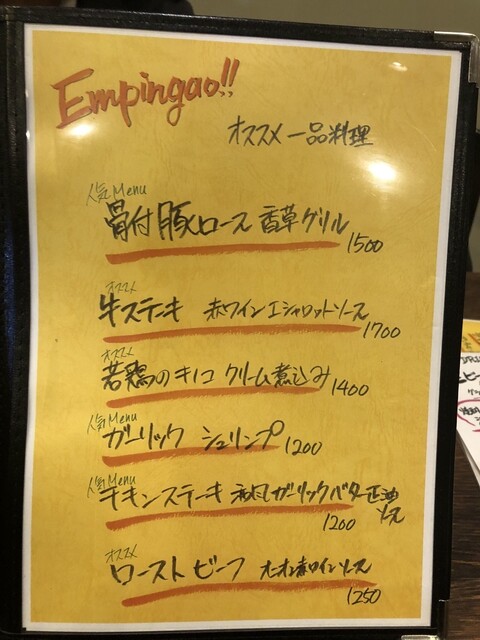 Empingao!!
オススメ一品料理
人気Menu
骨付豚ロース 香草グリル
1500
オススメ
牛ステーキ 赤ワインエシャロットソース
1700
オススメ
若鶏のキノコ クリーム煮込み 1400
人気Menu
ガーリック シュリンプ 1200
人気Menu
チキンステーキ ガーリックバター正油
ソース
1200
オススメ
ローストビーフ 赤ワインソース
1250